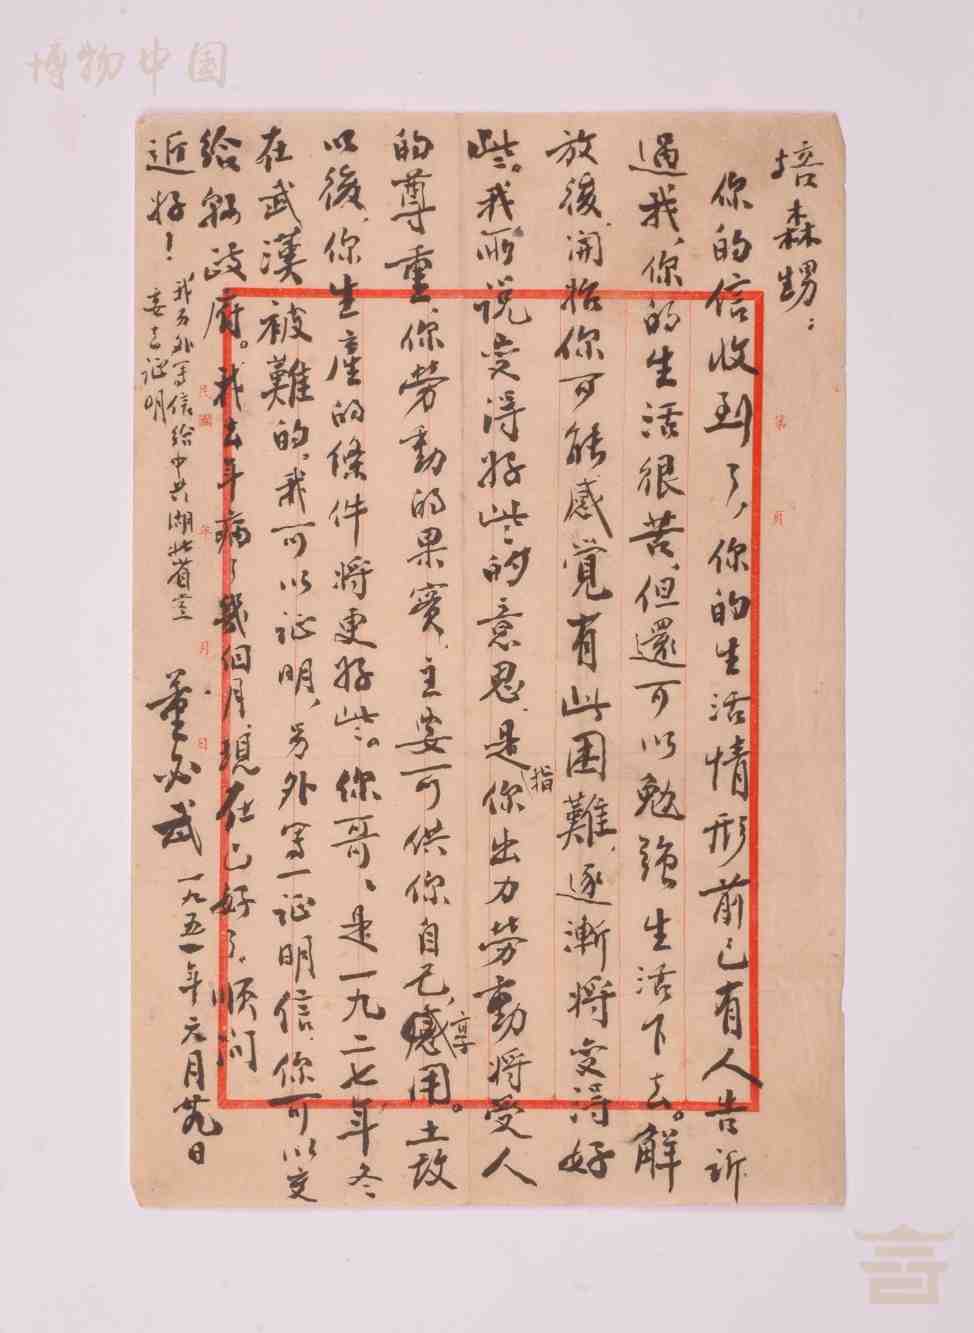 博物中国
培森甥：
你的信收到了，你的生活情形前已有人告訴
過我，你的生活很苦，但還可以勉強生活下去。解
放後，開始你可能感覺有些困難，逐漸將變得好
些。我所说变得好些的意思，是指你出力劳動將受人
的尊重，你劳動的果實，主要可供你自己享用。土改
以後，你生產的條件將更好些。你哥哥是一九二七年冬
在武漢被難的，我可以证明，另外写一证明信，你可以交
给縣政府。我去年病了幾個月，現在已好了。順问
近好！
我另外写信给中共湖北省委
董必武
一九五一年元月廿九日
第 頁
民國 年 月 日